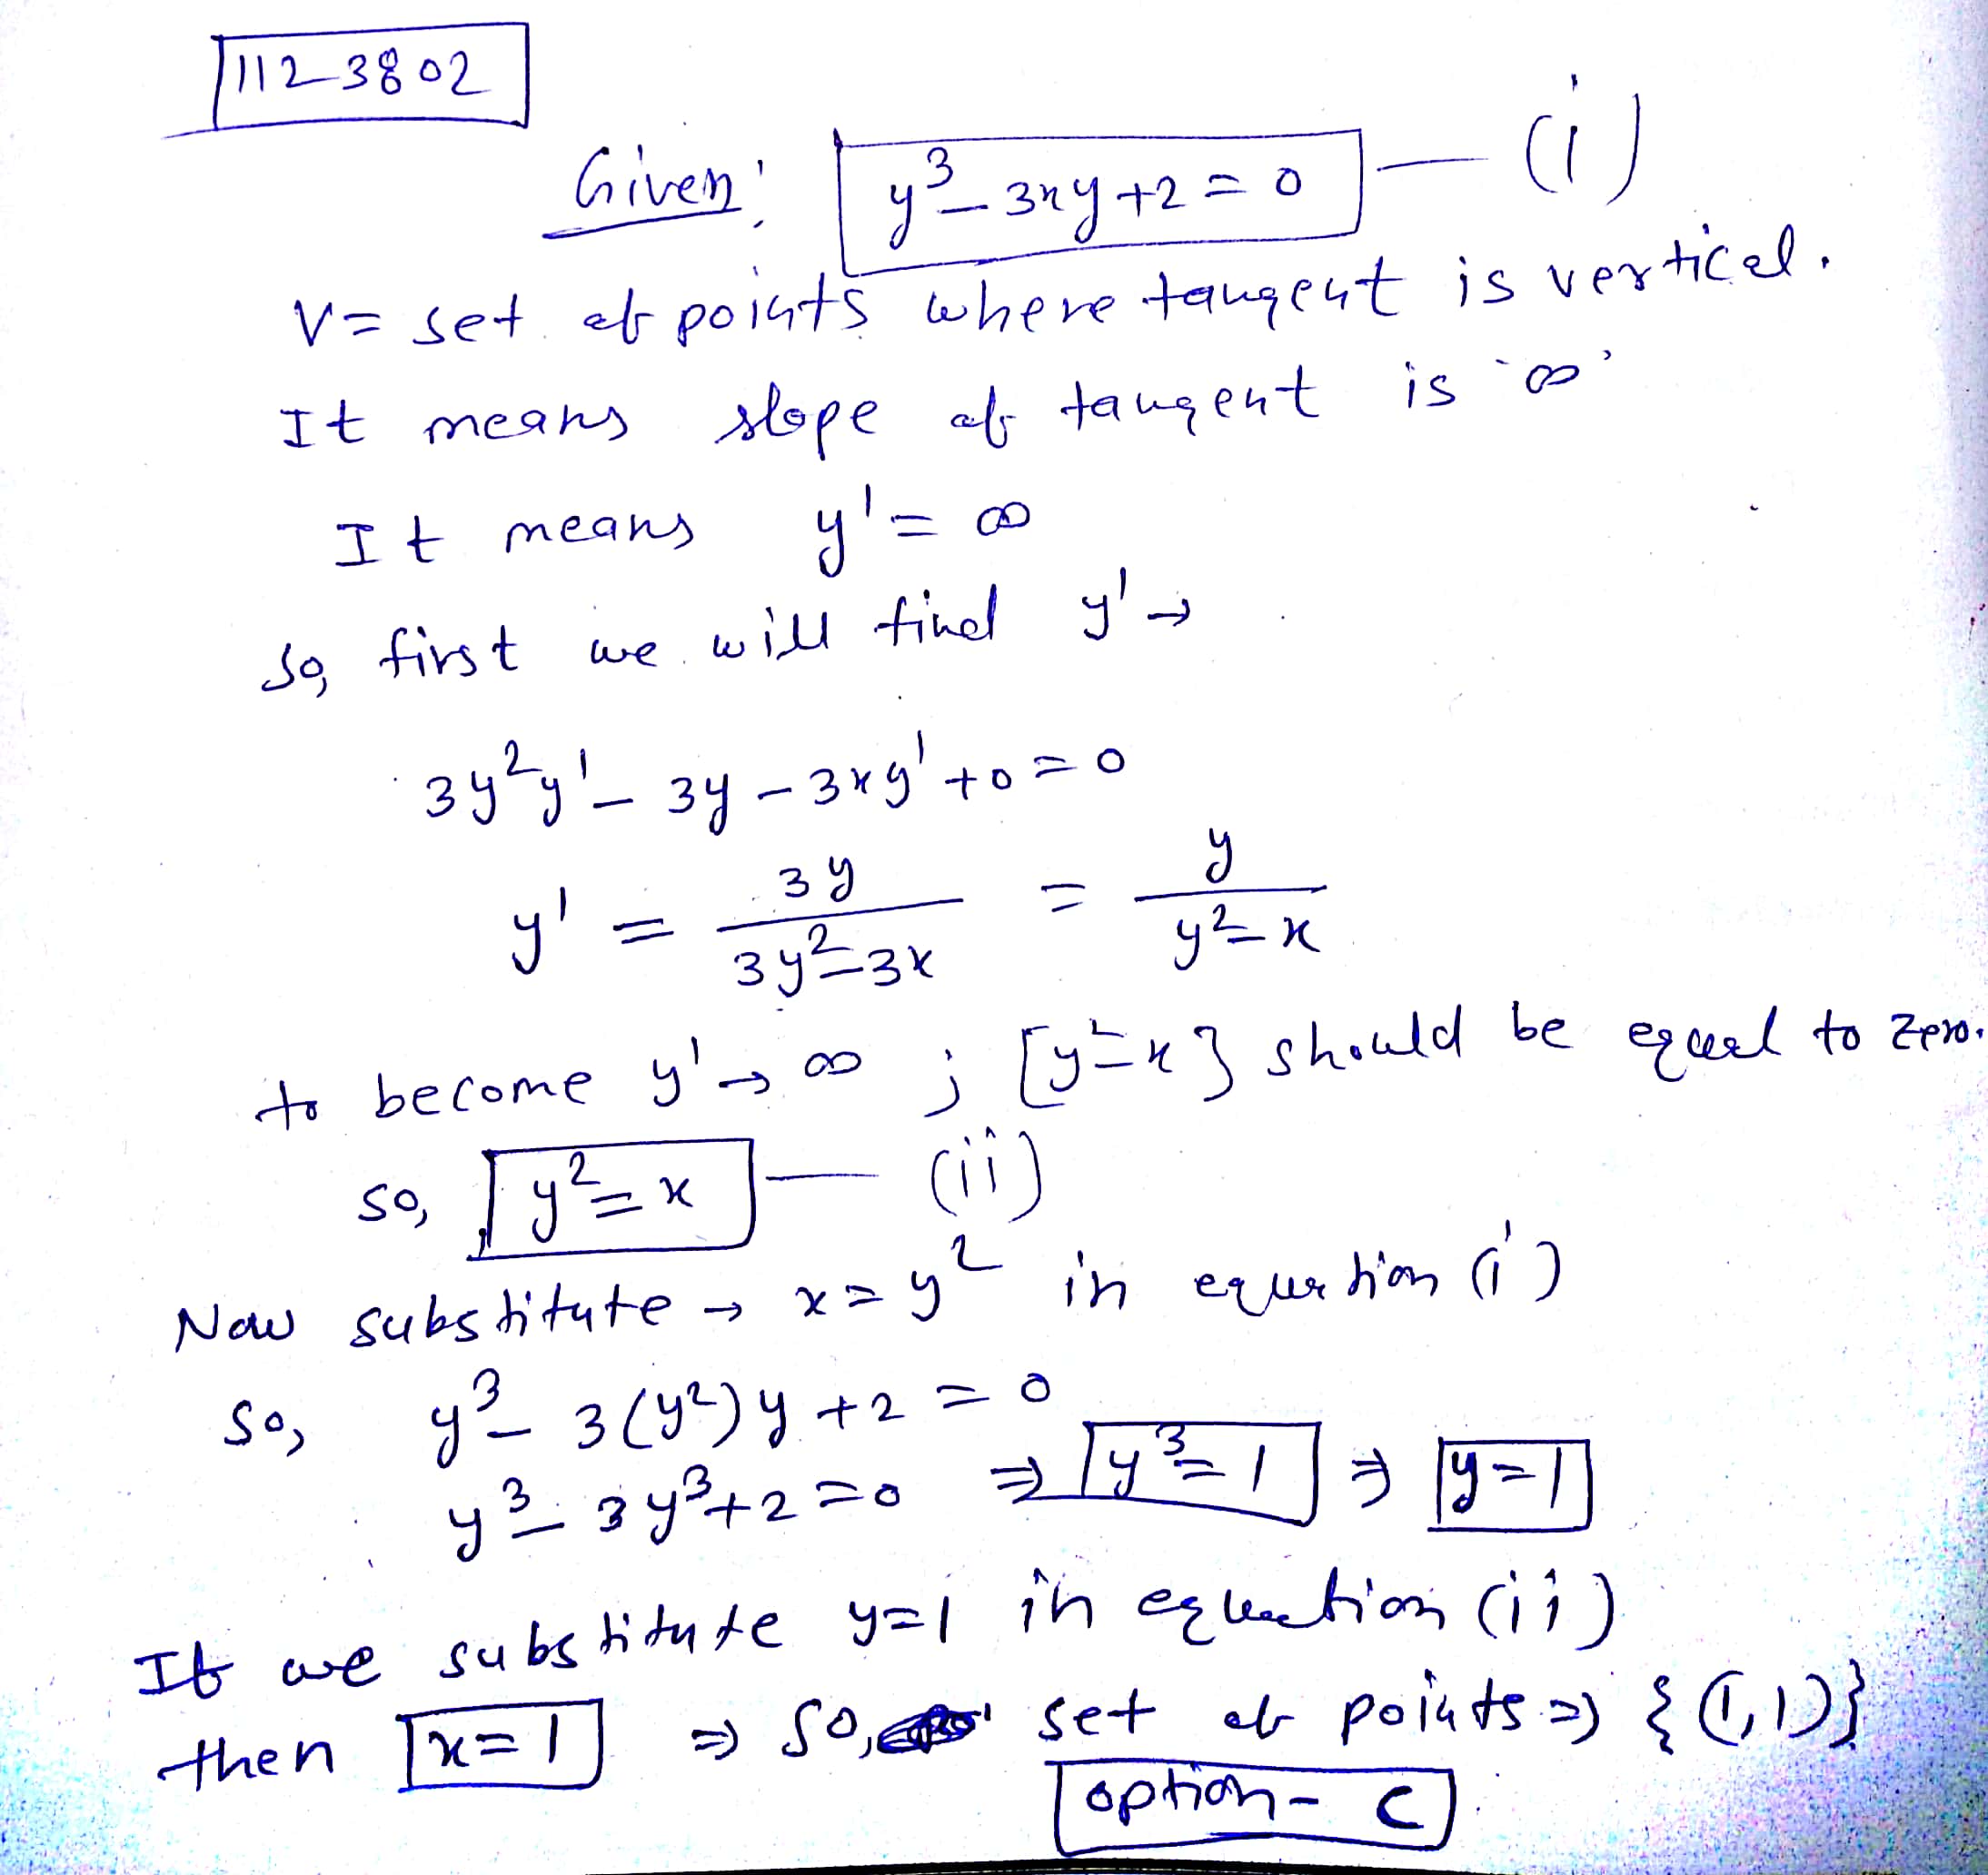 112-3802
Given: y³ - 3xy + 2 = 0 — (i)
V = set of points where tangent is vertical.
It means slope of tangent is '∞'
It means y' = ∞
So, first we will find y' →
3y²y' - 3y - 3xy' + 0 = 0
y' = 3y / 3y² - 3x = y / y² - x
to become y' → ∞ ; [y² - x} should be equal to zero.
so, y² = x — (ii)
Now substitute → x = y² in equation (i)
So, y³ - 3(y²)y + 2 = 0
y³ - 3y³ + 2 = 0 ⇒ y³ = 1 ⇒ y = 1
If we substitute y = 1 in equation (ii)
then x = 1 ⇒ So, set of points ⇒ {(1,1)}
option - C